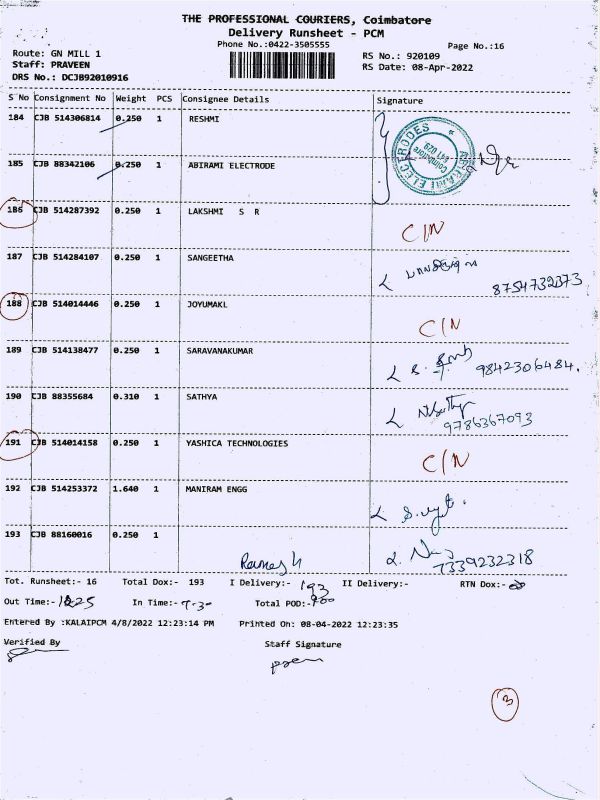 THE PROFESSIONAL COURIERS, Coimbatore
Delivery Runsheet - PCM
Phone No.:0422-3505555
Page No.:16
Route: GN MILL 1
Staff: PRAVEEN
DRS No.: DCJB92010916
RS No.: 920109
RS Date: 08-Apr-2022
S No Consignment No Weight PCS Consignee Details Signature
184 CJB 514306814 0.250 1 RESHMI
185 CJB 88342106 0.250 1 ABIRAMI ELECTRODE
186 CJB 514287392 0.250 1 LAKSHMI S R C/N
187 CJB 514284107 0.250 1 SANGEETHA 8754732373
188 CJB 514014446 0.250 1 JOYUMAKL C/N
189 CJB 514138477 0.250 1 SARAVANAKUMAR 9842306484.
190 CJB 88355684 0.310 1 SATHYA 9786367093
191 CJB 514014158 0.250 1 YASHICA TECHNOLOGIES C/N
192 CJB 514253372 1.640 1 MANIRAM ENGG
193 CJB 88160016 0.250 1 7339232318
Ramesh
Tot. Runsheet:- 16 Total Dox:- 193 I Delivery:- 193 II Delivery:- RTN Dox:-
Out Time:- In Time:- 7-30 Total POD:-
Entered By :KALAIPCM 4/8/2022 12:23:14 PM Printed On: 08-04-2022 12:23:35
Verified By Staff Signature
3